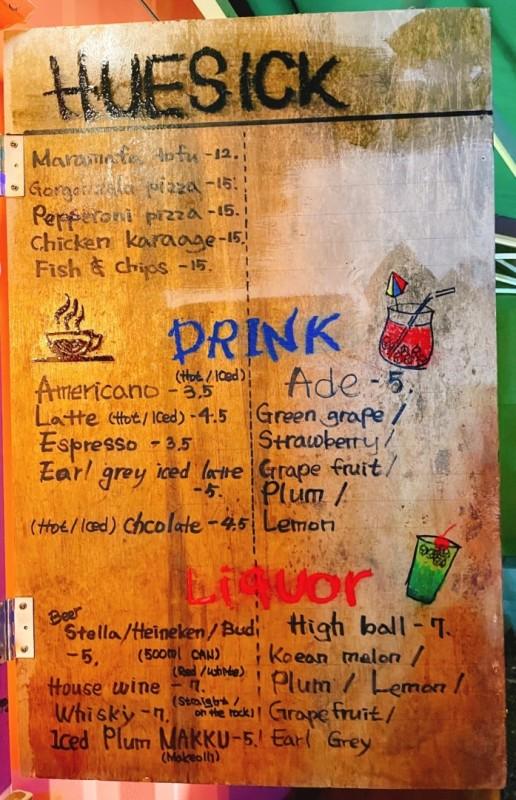 HUESICK
Maramafa tofu -12.
Gorgonzola pizza -15.
Pepperoni pizza -15.
Chicken karaage -15.
Fish & chips -15.
DRINK
(Hot/Iced)
Americano - 3,5
Latte (Hot/Iced) - 4.5
Espresso - 3.5
Earl grey iced latte
-5.
(Hot/Iced) Chcolate - 4.5
Ade - 5.
Green grape /
Strawberry /
Grape fruit /
Plum /
Lemon
Liquor
Beer
Stella/Heineken/Bud
-5, (500ml CAN)
(Red/White)
House wine - 7.
(Straight/
Whisky -7, on the rock)
Iced Plum MAKKU -5.
(Makeolli)
High ball - 7.
Koean melon /
Plum / Lemon /
Grapefruit /
Earl Grey